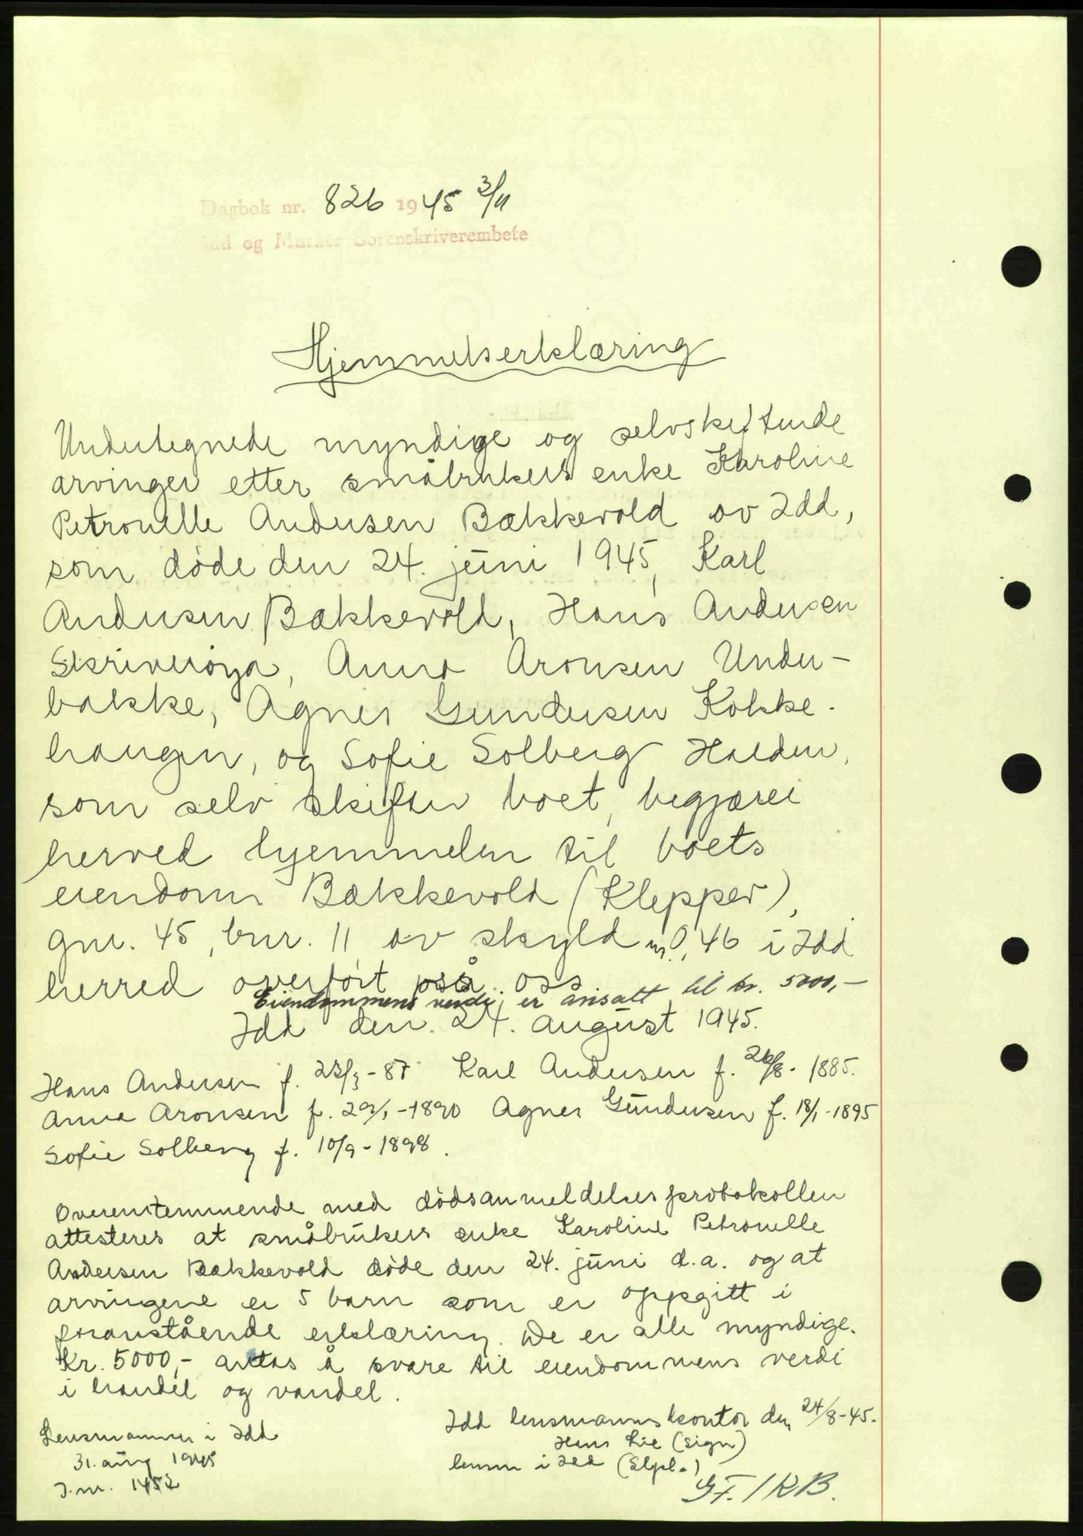 Dagbok nr. 826 1945 3/11
Idd og Marker Sorenskriverembete
Hjemmelserklæring
Undertegnede myndige og selvskiftende
arvinger etter småbrukers enke Karoline
Petronelle Andersen Bækkevold av Idd,
som døde den 24. juni 1945, Karl
Andersen Bækkevold, Hans Andersen
Skriverøya, Anna Aronsen Under-
bakke, Agnes Gundersen Kokke-
haugen, og Sofie Solberg Halden,
som selv skifter boet, begjærer
herved hjemmelen til boets
eiendom Bækkevold (Klepper),
gnr. 45, bnr. 11 av skyld m. 0,46 i Idd
herred overført på oss
Eiendommens verdi er ansatt til kr. 5000,-
Idd den. 24. august 1945.
Hans Andersen f. 23/3-87 Karl Andersen f. 26/8-1885.
Anna Aronsen f. 29/1-1890 Agnes Gundersen f. 18/1-1895
Sofie Solberg f. 10/9-1898.
Overenstemmende med dødsanmeldelsesprotokollen
attesteres at småbrukers enke Karoline Petronelle
Andersen Bækkevold døde den 24. juni d.a. og at
arvingene er 5 barn som er oppgitt i
foranstående erklæring. De er alle myndige.
Kr. 5000,- antas å svare til eiendommens verdi
i handel og vandel.
Idd lensmannskontor den 24/8-45.
Hans Lie (sign)
lensm i Idd (Stpl.)
Lensmannen i Idd
31. aug 1945
J.nr. 1452
GF. / KB.